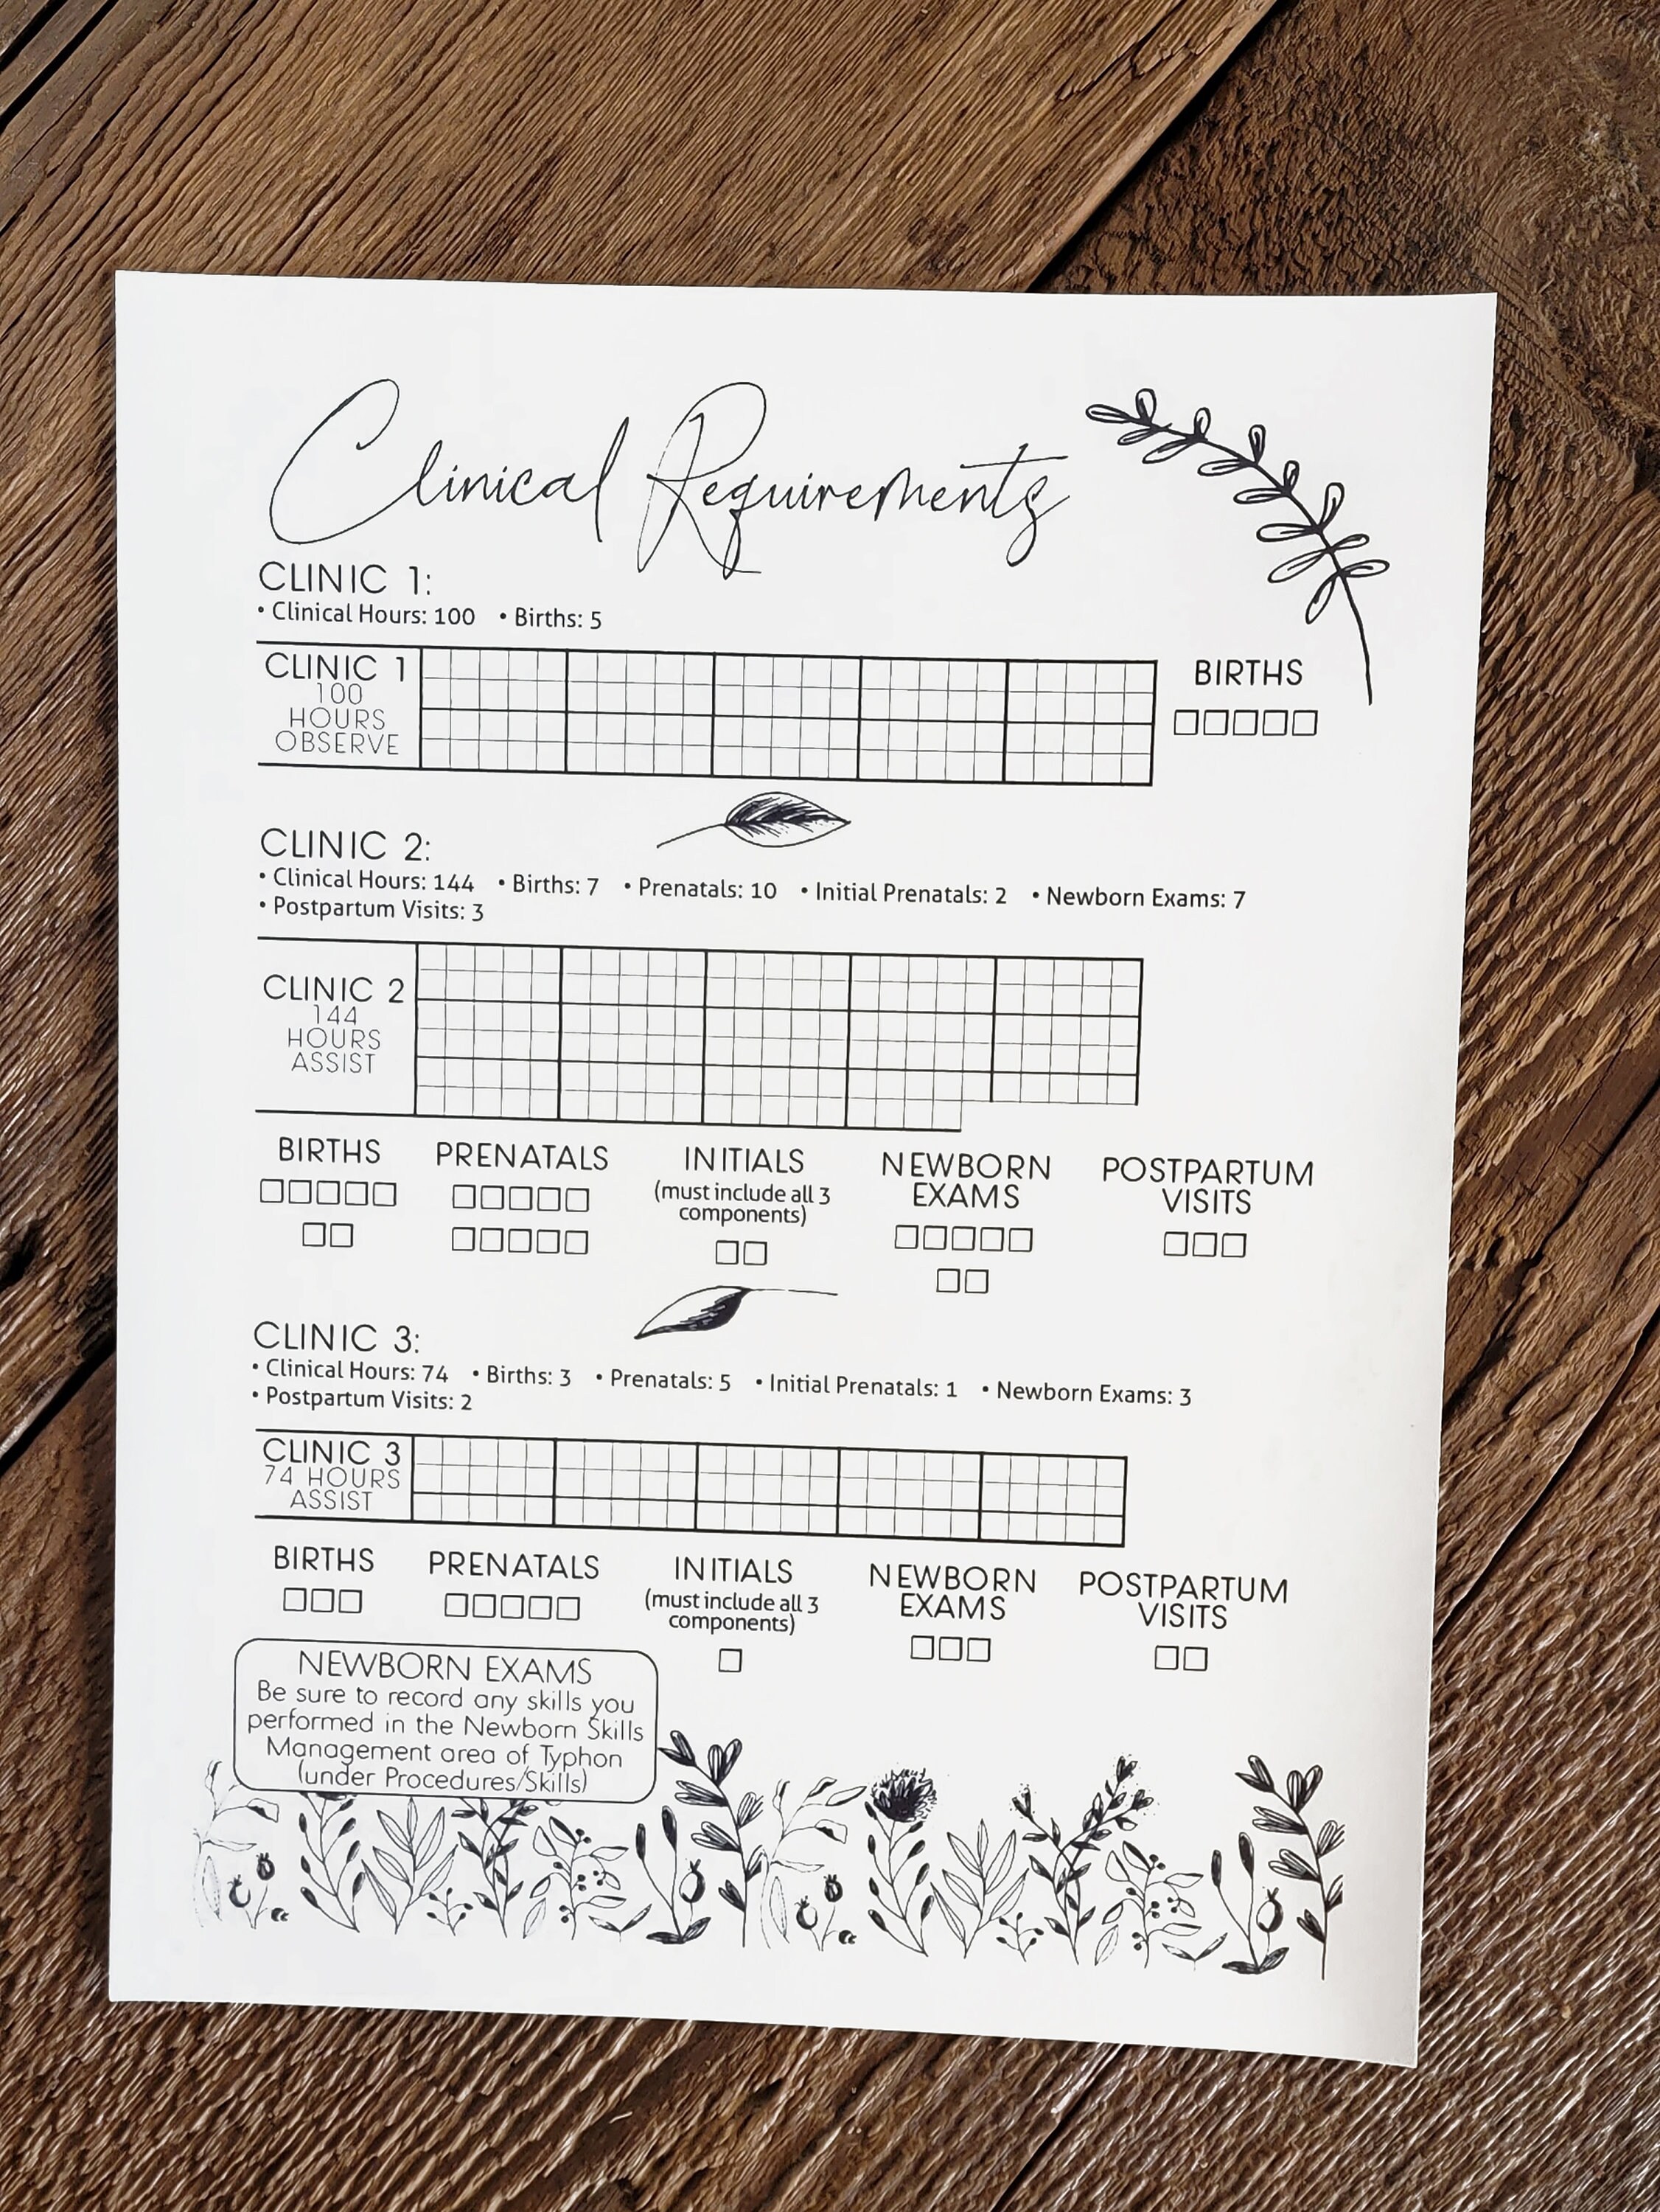 Clinical Requirements
CLINIC 1:
• Clinical Hours: 100 • Births: 5
CLINIC 1
100
HOURS
OBSERVE
BIRTHS
CLINIC 2:
• Clinical Hours: 144 • Births: 7 • Prenatals: 10 • Initial Prenatals: 2 • Newborn Exams: 7
• Postpartum Visits: 3
CLINIC 2
144
HOURS
ASSIST
BIRTHS
PRENATALS
INITIALS
(must include all 3
components)
NEWBORN
EXAMS
POSTPARTUM
VISITS
CLINIC 3:
• Clinical Hours: 74 • Births: 3 • Prenatals: 5 • Initial Prenatals: 1 • Newborn Exams: 3
• Postpartum Visits: 2
CLINIC 3
74 HOURS
ASSIST
BIRTHS
PRENATALS
INITIALS
(must include all 3
components)
NEWBORN
EXAMS
POSTPARTUM
VISITS
NEWBORN EXAMS
Be sure to record any skills you
performed in the Newborn Skills
Management area of Typhon
(under Procedures/Skills)